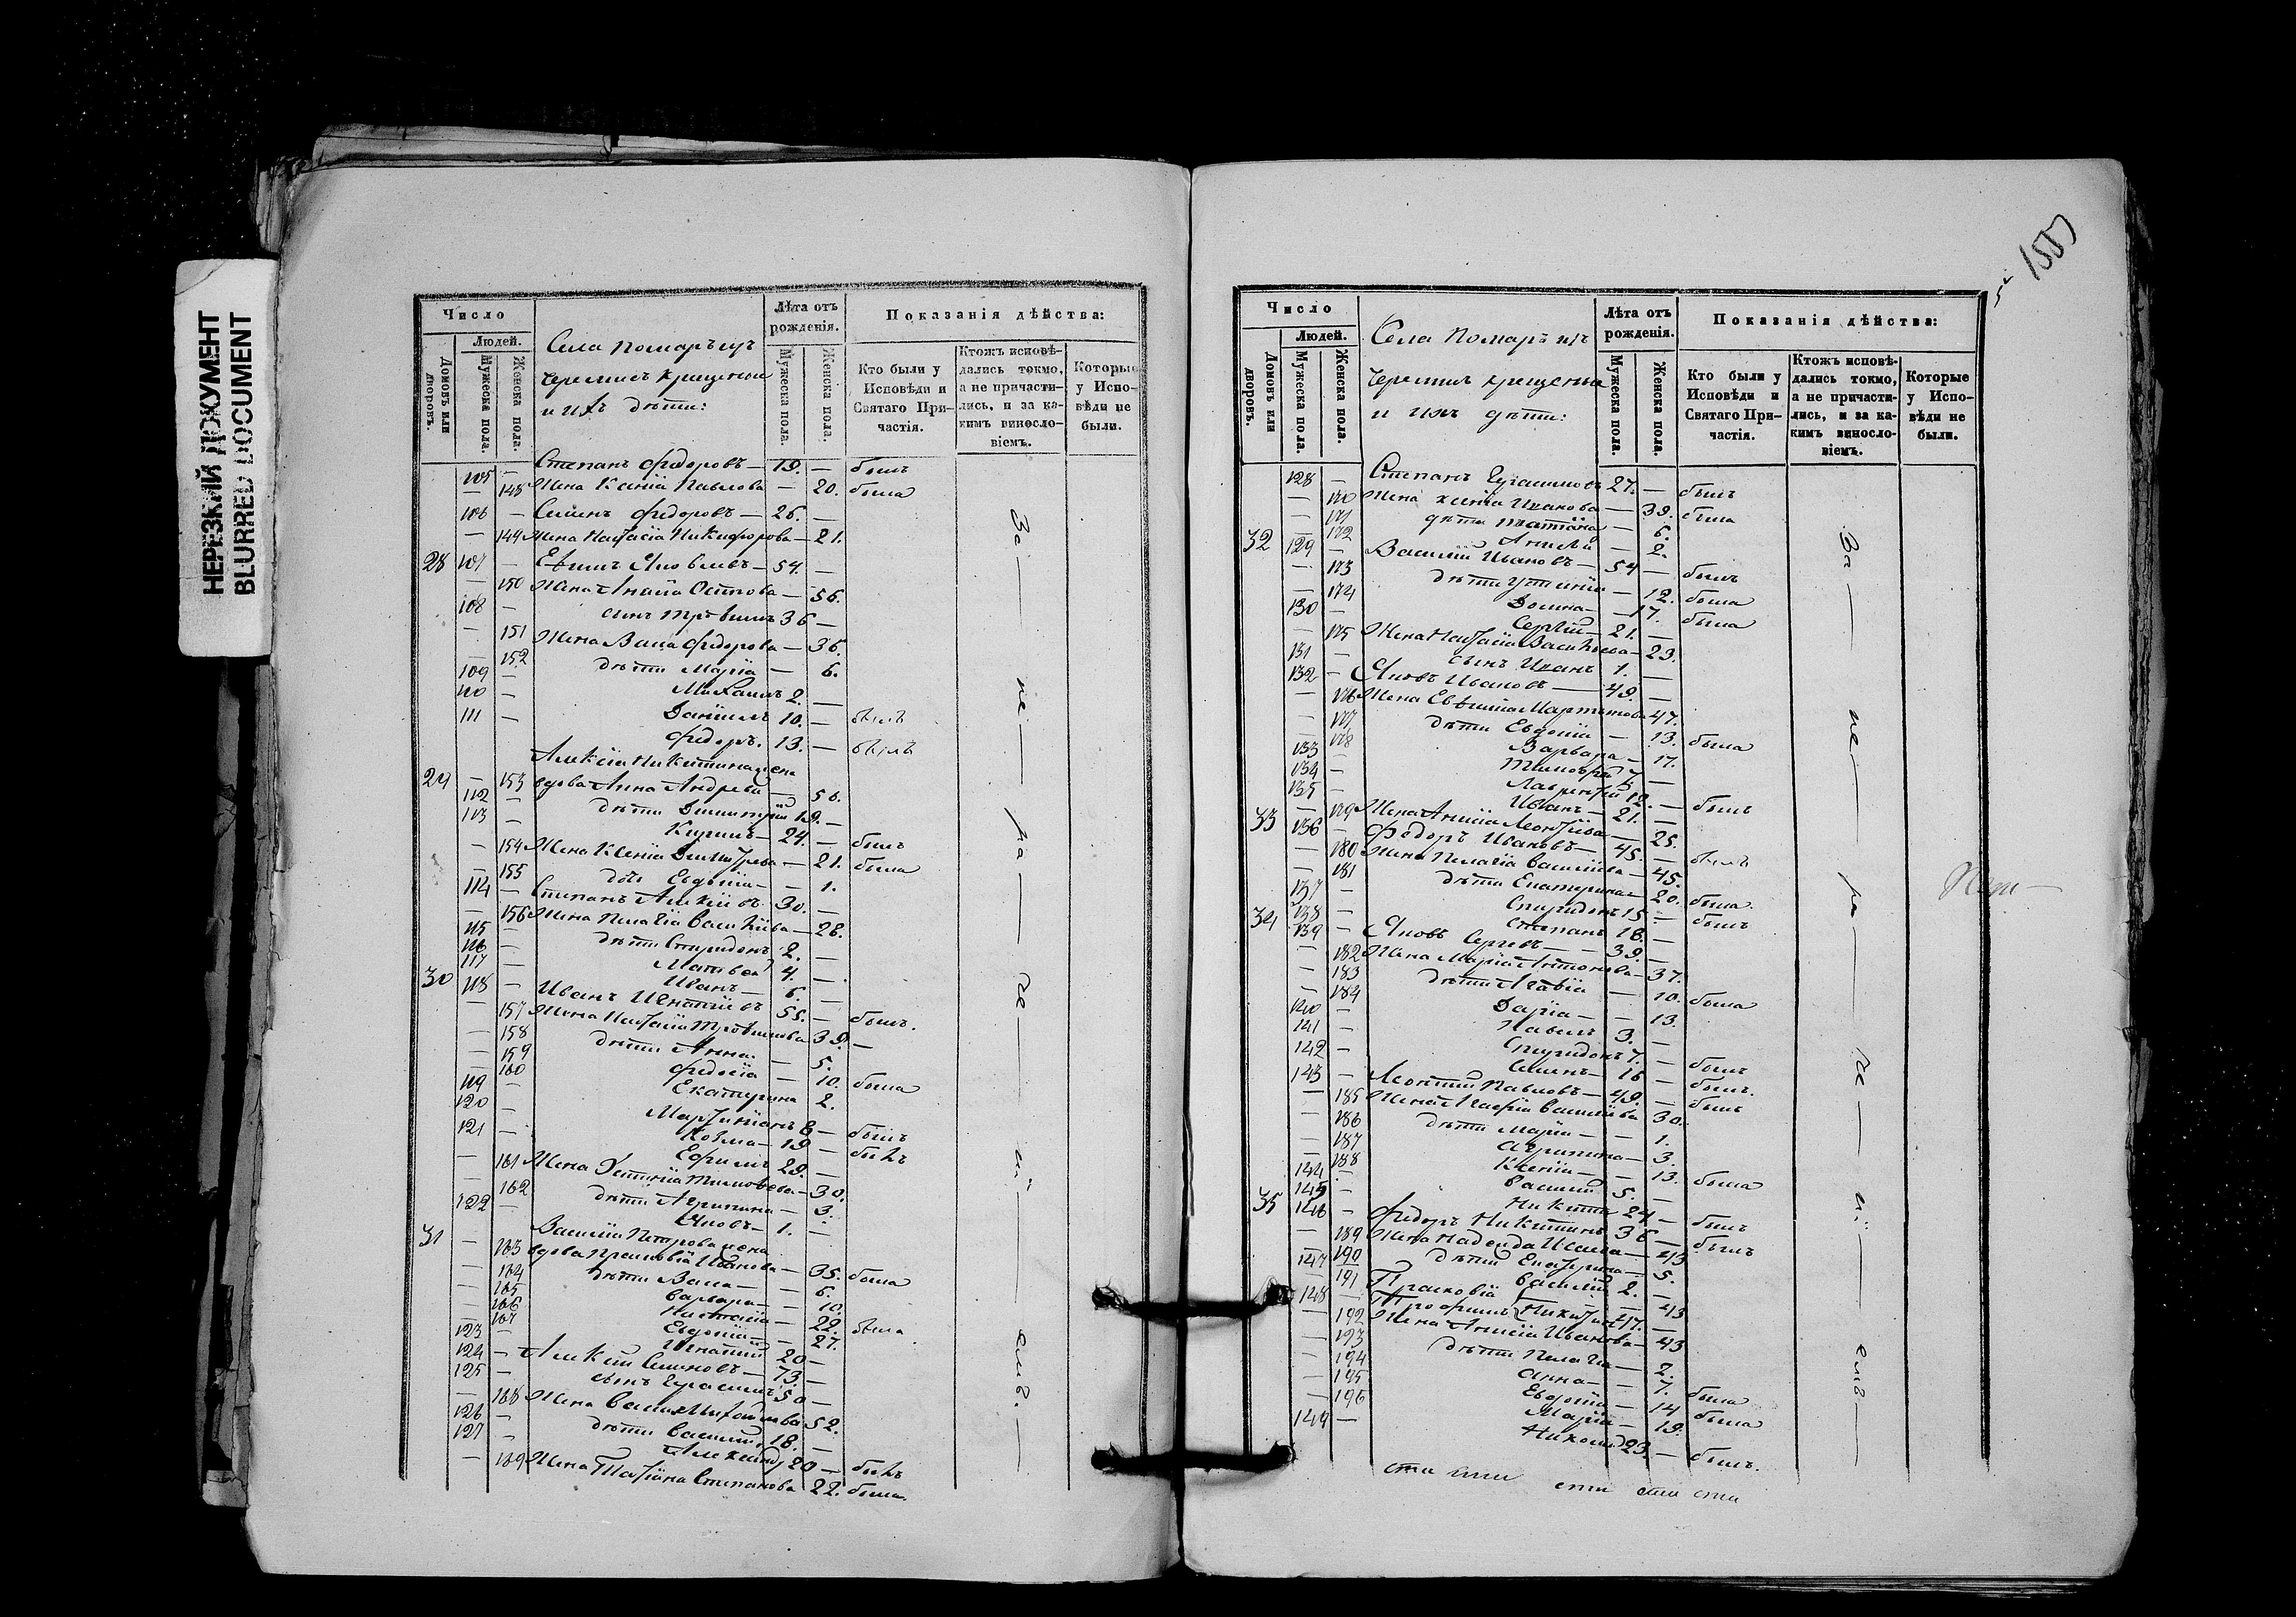 НЕРЕЗКИЙ ДОКУМЕНТ
BLURRED DOCUMENT
Число
Людей.
Домовъ или дворовъ.
Мужеска пола.
Женска пола.
Села Помаръ
Черемисъ крещеныи
и ихъ дѣти:
Лѣта отъ рожденія.
Мужеска пола.
Женска пола.
Показанія дѣйства:
Кто были у Исповѣди и Святаго При-частія.
Ктожъ исповѣ-дались токмо, а не причасти-лись, и за ка-кимъ винословіемъ.
Которые у Испо-вѣди не были.
105 — Степанъ Ѳедоровъ — 19. — былъ
— 148 Жена Ксенія Павлова — 20. была
106 — Семенъ Ѳедоровъ — 26. —
— 149 Жена Настасія Никифорова — 21.
28 107 — Яковлевъ — 54. —
— 150 Жена Осипова — 56.
108 — сынъ 36 —
— 151 Жена Ѳедорова — 36.
— 152 дѣти Марія — 6.
109 — Михаилъ 2. —
110 — Даніилъ 10. — былъ
111 — Ѳедоръ. 13. — былъ
Алексія Никитина жена
29 — 153 вдова Анна Андреева — 56.
112 — дѣти Димитрій 19. —
113 — Кирилъ — 24. — былъ
— 154 Жена Ксенія — 21. была
— 155 дочь Евдокія — — 1.
114 — Степанъ Алексіевъ 30. —
— 156 Жена Пелагія Василіева — 28.
115 — дѣти Спиридонъ 2. —
116 — Матвей 4. —
117 — Иванъ — 6. —
30 118 — Иванъ Игнатіевъ 55. — былъ.
— 157 Жена Настасія Трофимова 39. —
— 158 дѣти Анна. — 5.
— 159 Ѳедосія — 10. была
— 160 Екатерина 2.
119 — 8 — былъ
120 — Козма — 19 — былъ
121 — Ефимъ 29. —
— 161 Жена Устинія — 30.
— 162 дѣти Агрипина — 3.
122 — Яковъ — 1. —
Василія Петрова жена
31 — 163 вдова Прасковія Иванова — 35. была
— 164 дѣти — 6.
— 165 Варвара — — 10.
— 166 Настасія — 22. была
— 167 Евдокія — 27.
123 — Игнатій 20 —
124 — Алексій Семеновъ — 73. —
125 — сынъ Герасимъ 50 —
— 168 Жена 52.
126 — дѣти Василій. 18. —
127 — Алексій 20 — былъ
— 169 Жена Татіана Степанова 22. была.
За — не — ра — че — ні — емъ. —
155
Число
Людей.
Домовъ или дворовъ.
Мужеска пола.
Женска пола.
Села Помаръ
Черемисъ крещеныи
и ихъ дѣти:
Лѣта отъ рожденія.
Мужеска пола.
Женска пола.
Показанія дѣйства:
Кто были у Исповѣди и Святаго При-частія.
Ктожъ исповѣ-дались токмо, а не причасти-лись, и за ка-кимъ винословіемъ.
Которые у Испо-вѣди не были.
128 — Степанъ Герасимовъ 27. — былъ
— 170 Жена Иванова — 39. была
— 171 дѣти Татіана — 6.
— 172 — 2.
32 129 — Василій Ивановъ — 54 — былъ
— 173 дѣти Устинія — 12. была
— 174 Домна — 17. была
130 — Сергій — 21. —
— 175 Жена Настасія — 23.
131 — сынъ Иванъ 1. —
132 — Яковъ Ивановъ — 49. —
— 176 Жена Мартинова 47.
— 177 дѣти Евдокія — 13. была
— 178 Варвара — 17.
133 — Тимофей 7 —
134 — Лаврентій 12. — былъ
135 — Иванъ — 21. —
— 179 Жена Леонтіева — 25.
33 136 — Ѳедоръ Ивановъ — 45. — былъ
— 180 Жена Пелагія Василіева — 45.
— 181 дѣти Екатерина — 20. была.
137 — Спиридонъ 15 — былъ
138 — Степанъ 18. —
34 139 — Яковъ — 39. —
— 182 Жена Марія Антонова — 37.
— 183 дѣти — 10. была
— 184 Дарія — — 13.
140 — Павелъ 3. —
141 — Спиридонъ 7. — былъ
142 — Семенъ — 16 — былъ.
143 — Леонтій Павловъ — 49. — былъ
— 185 Жена Василіева 30.
— 186 дѣти Марія — — 1.
— 187 Агрипина — 3.
— 188 Ксенія — 13. была
144 — Василій 5. —
145 — Никита 24 — былъ
35 146 — Ѳедоръ Никитинъ 36 — былъ
— 189 Жена — 43
— 190 дѣти Екатерина — 5.
147 — Василій 2. —
— 191 Прасковія — 43
148 — Трофимъ Никитинъ 47. —
— 192 Жена Анисія Иванова — 43
— 193 дѣти Пелагія — 2.
— 194 Анна — — 7. была
— 195 Евдокія — 14 была
— 196 Марія — 19.
149 — Николай 23. — былъ.
За — не — ра — че — ні — емъ —